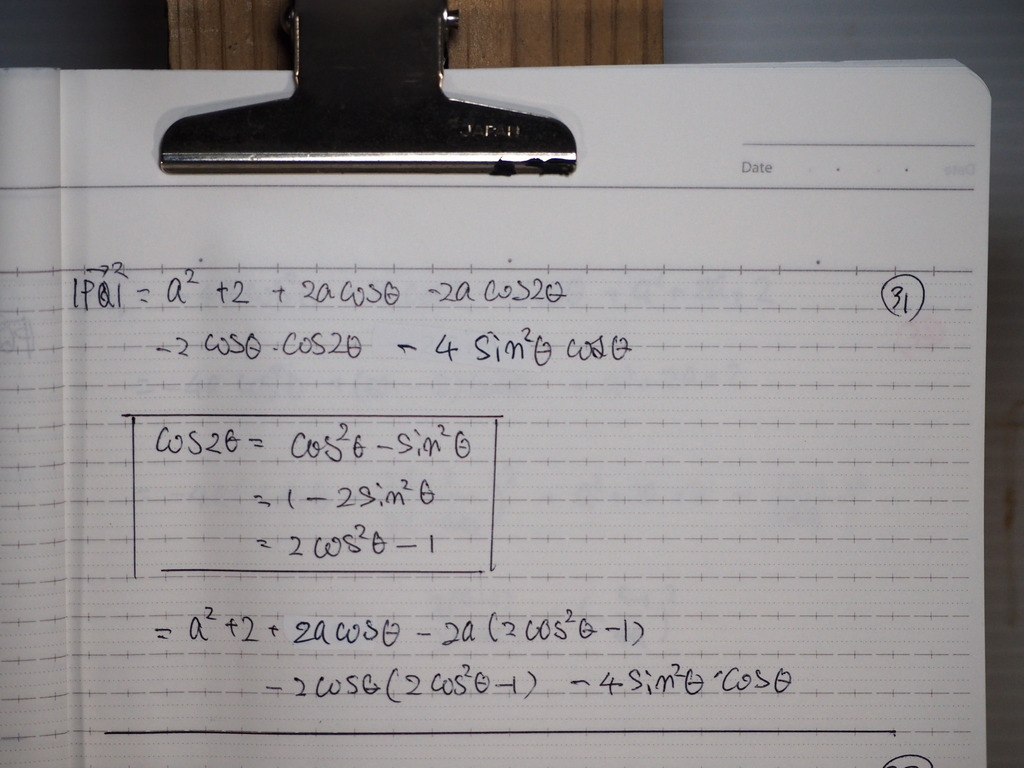 JAPAN
Date
|PQ→|² = a² + 2 + 2a cosθ - 2a cos2θ
31
- 2 cosθ · cos2θ - 4 sin²θ cosθ
cos2θ = cos²θ - sin²θ
= 1 - 2sin²θ
= 2cos²θ - 1
= a² + 2 + 2a cosθ - 2a (2cos²θ - 1)
- 2cosθ (2cos²θ - 1) - 4sin²θ · cosθ